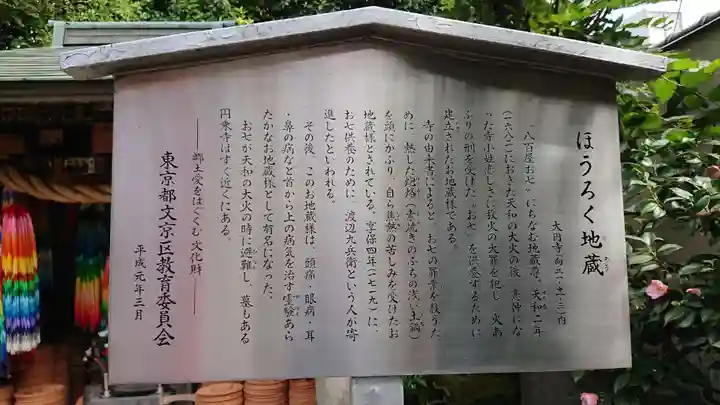 ほうろく地蔵
大円寺向丘一-十一-三内
“八百屋お七”にちなむお地蔵尊。天和二年
(一六八二)におきた天和の大火の後、恋仲にな
った寺小姓恋しさに放火の大罪を犯し、火あ
ぶりの刑を受けた“お七”を供養するために
建立されたお地蔵様である。
寺の由来書によると、お七の罪業を救うた
めに、熱した炮烙(素焼きのふちの浅い土鍋)
を頭にかぶり、自ら焦熱の苦しみを受けたお
地蔵様とされている。享保四年(一七一九)に、
お七供養のために、渡辺九兵衛という人が寄
進したといわれる。
その後、このお地蔵様は、頭痛・眼病・耳
・鼻の病など首から上の病気を治す霊験あら
たかなお地蔵様として有名になった。
お七が天和の大火の時に避難し、墓もある
円乗寺はすぐ近くにある。
――郷土愛をはぐくむ文化財――
東京都文京区教育委員会
平成元年三月